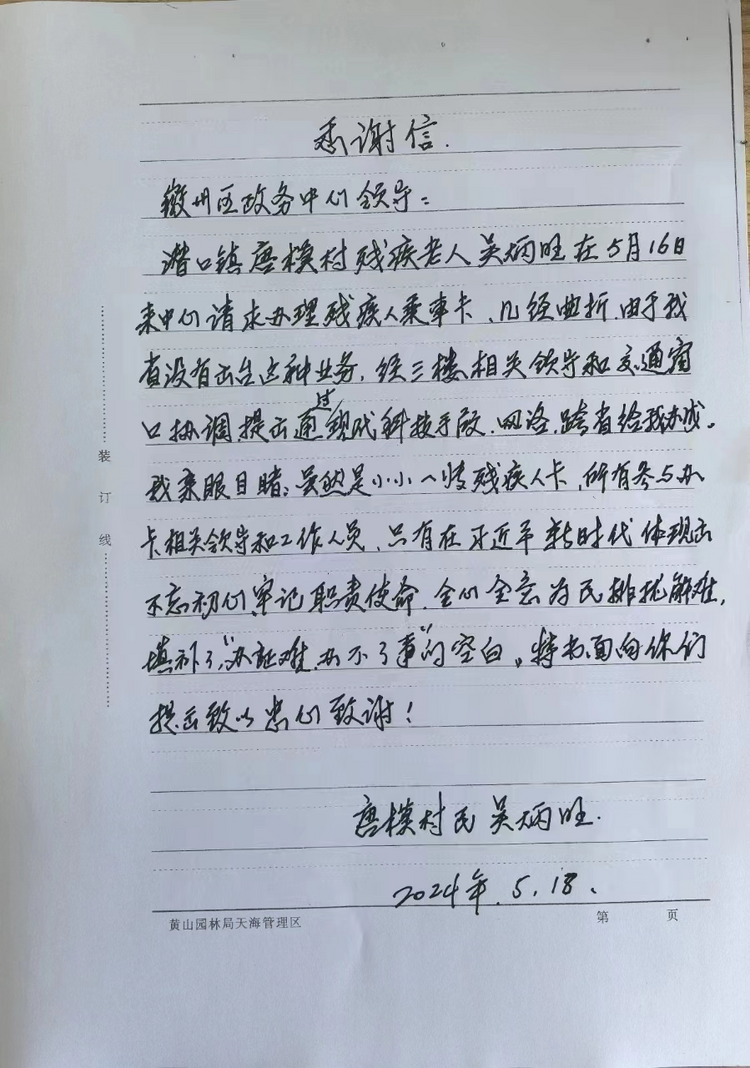 感谢信.
徽州区政务中心领导：
潜口镇唐模村残疾老人吴炳旺在5月16日
来中心请求办理残疾人乘车卡、几经曲折、由于我
省没有出台这种业务，经三楼相关领导和交通窗
口协调提出通过现代科技手段、网络、跨省给我办成。
我亲眼目睹：虽然是小小一张残疾人卡，所有参与办
卡相关领导和工作人员、只有在习近平新时代体现出
不忘初心、牢记职责使命、全心全意为民排忧解难，
填补了“办证难、办不了事”的空白。特书面向你们
提出致以忠心致谢！
唐模村民 吴炳旺.
2024年.5.18.
装
订
线
黄山园林局天海管理区
第 页